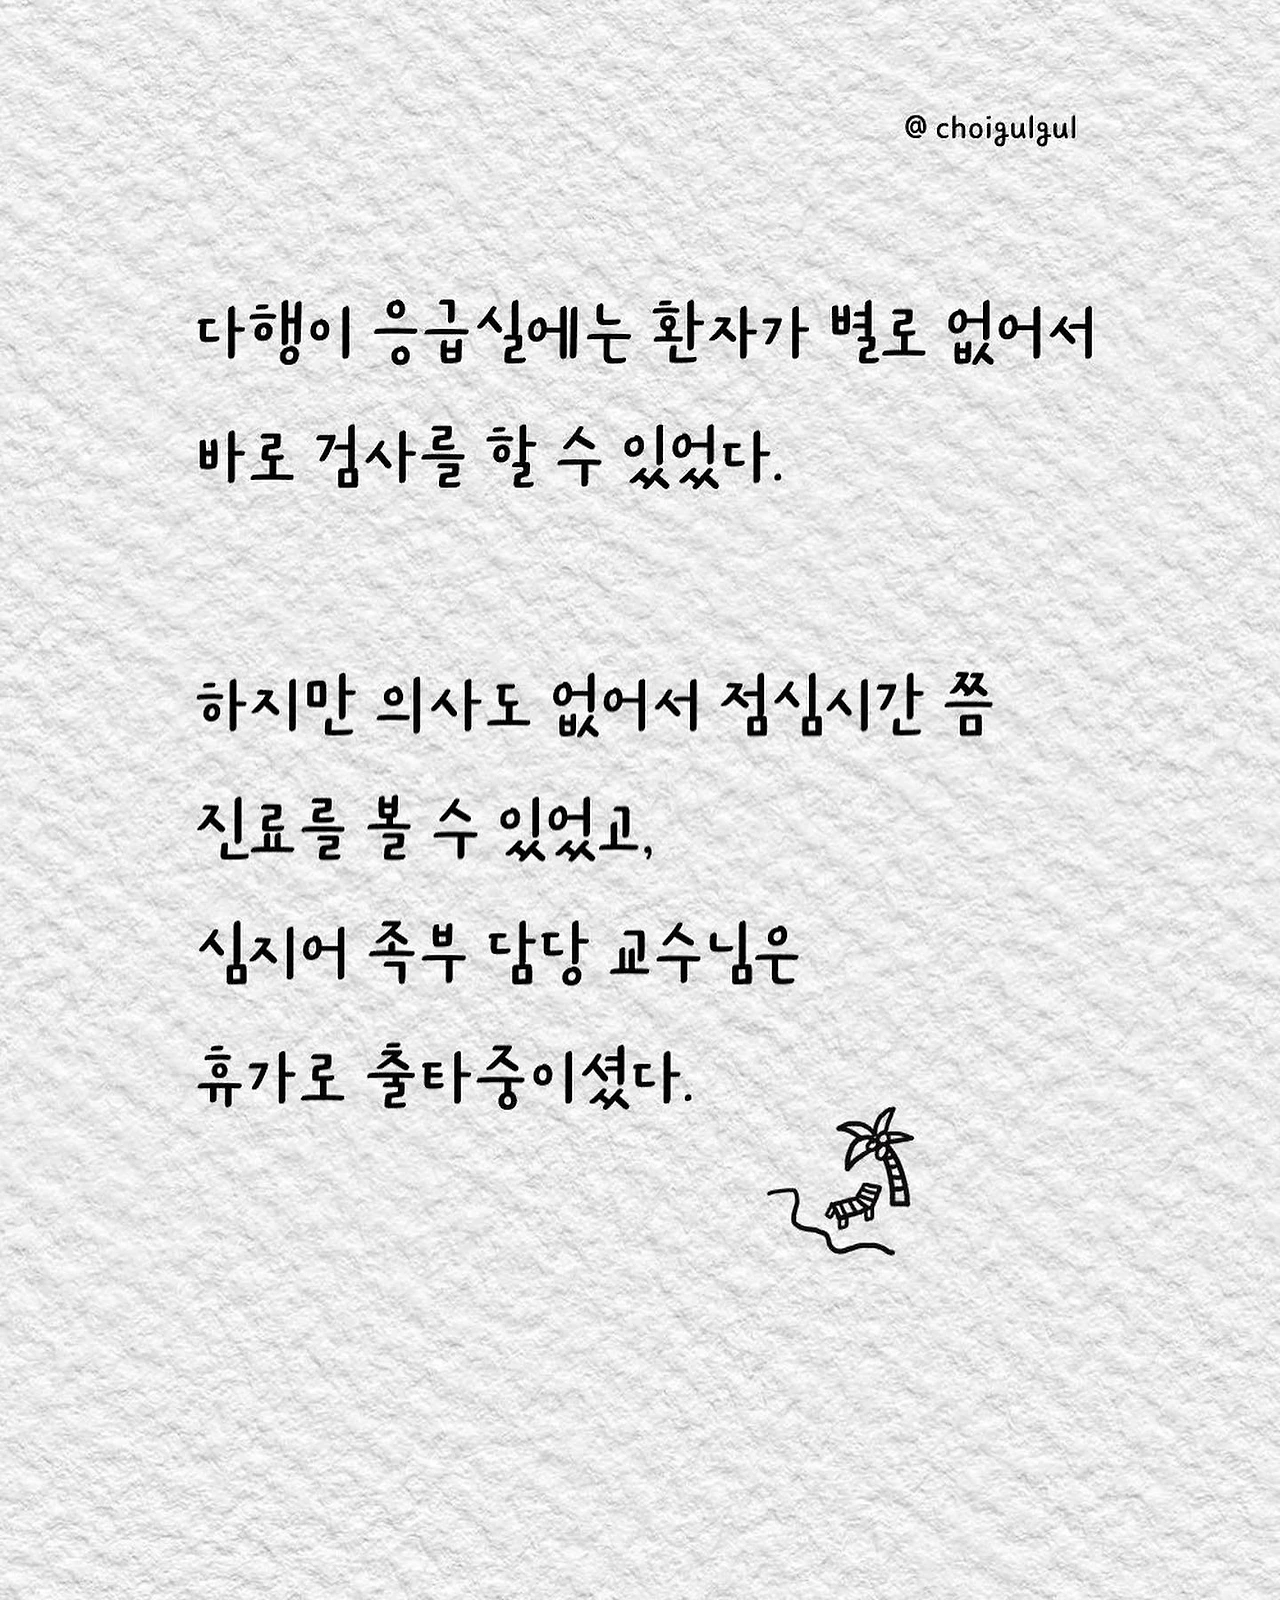 @ choigulgul
다행이 응급실에는 환자가 별로 없어서
바로 검사를 할 수 있었다.
하지만 의사도 없어서 점심시간 쯤
진료를 볼 수 있었고,
심지어 족부 담당 교수님은
휴가로 출타중이셨다.